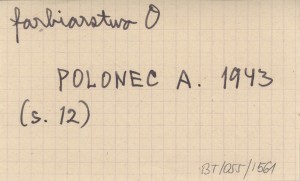 farbiarstwo O
POLONEC A. 1943
(s. 12)
BT/055/1561